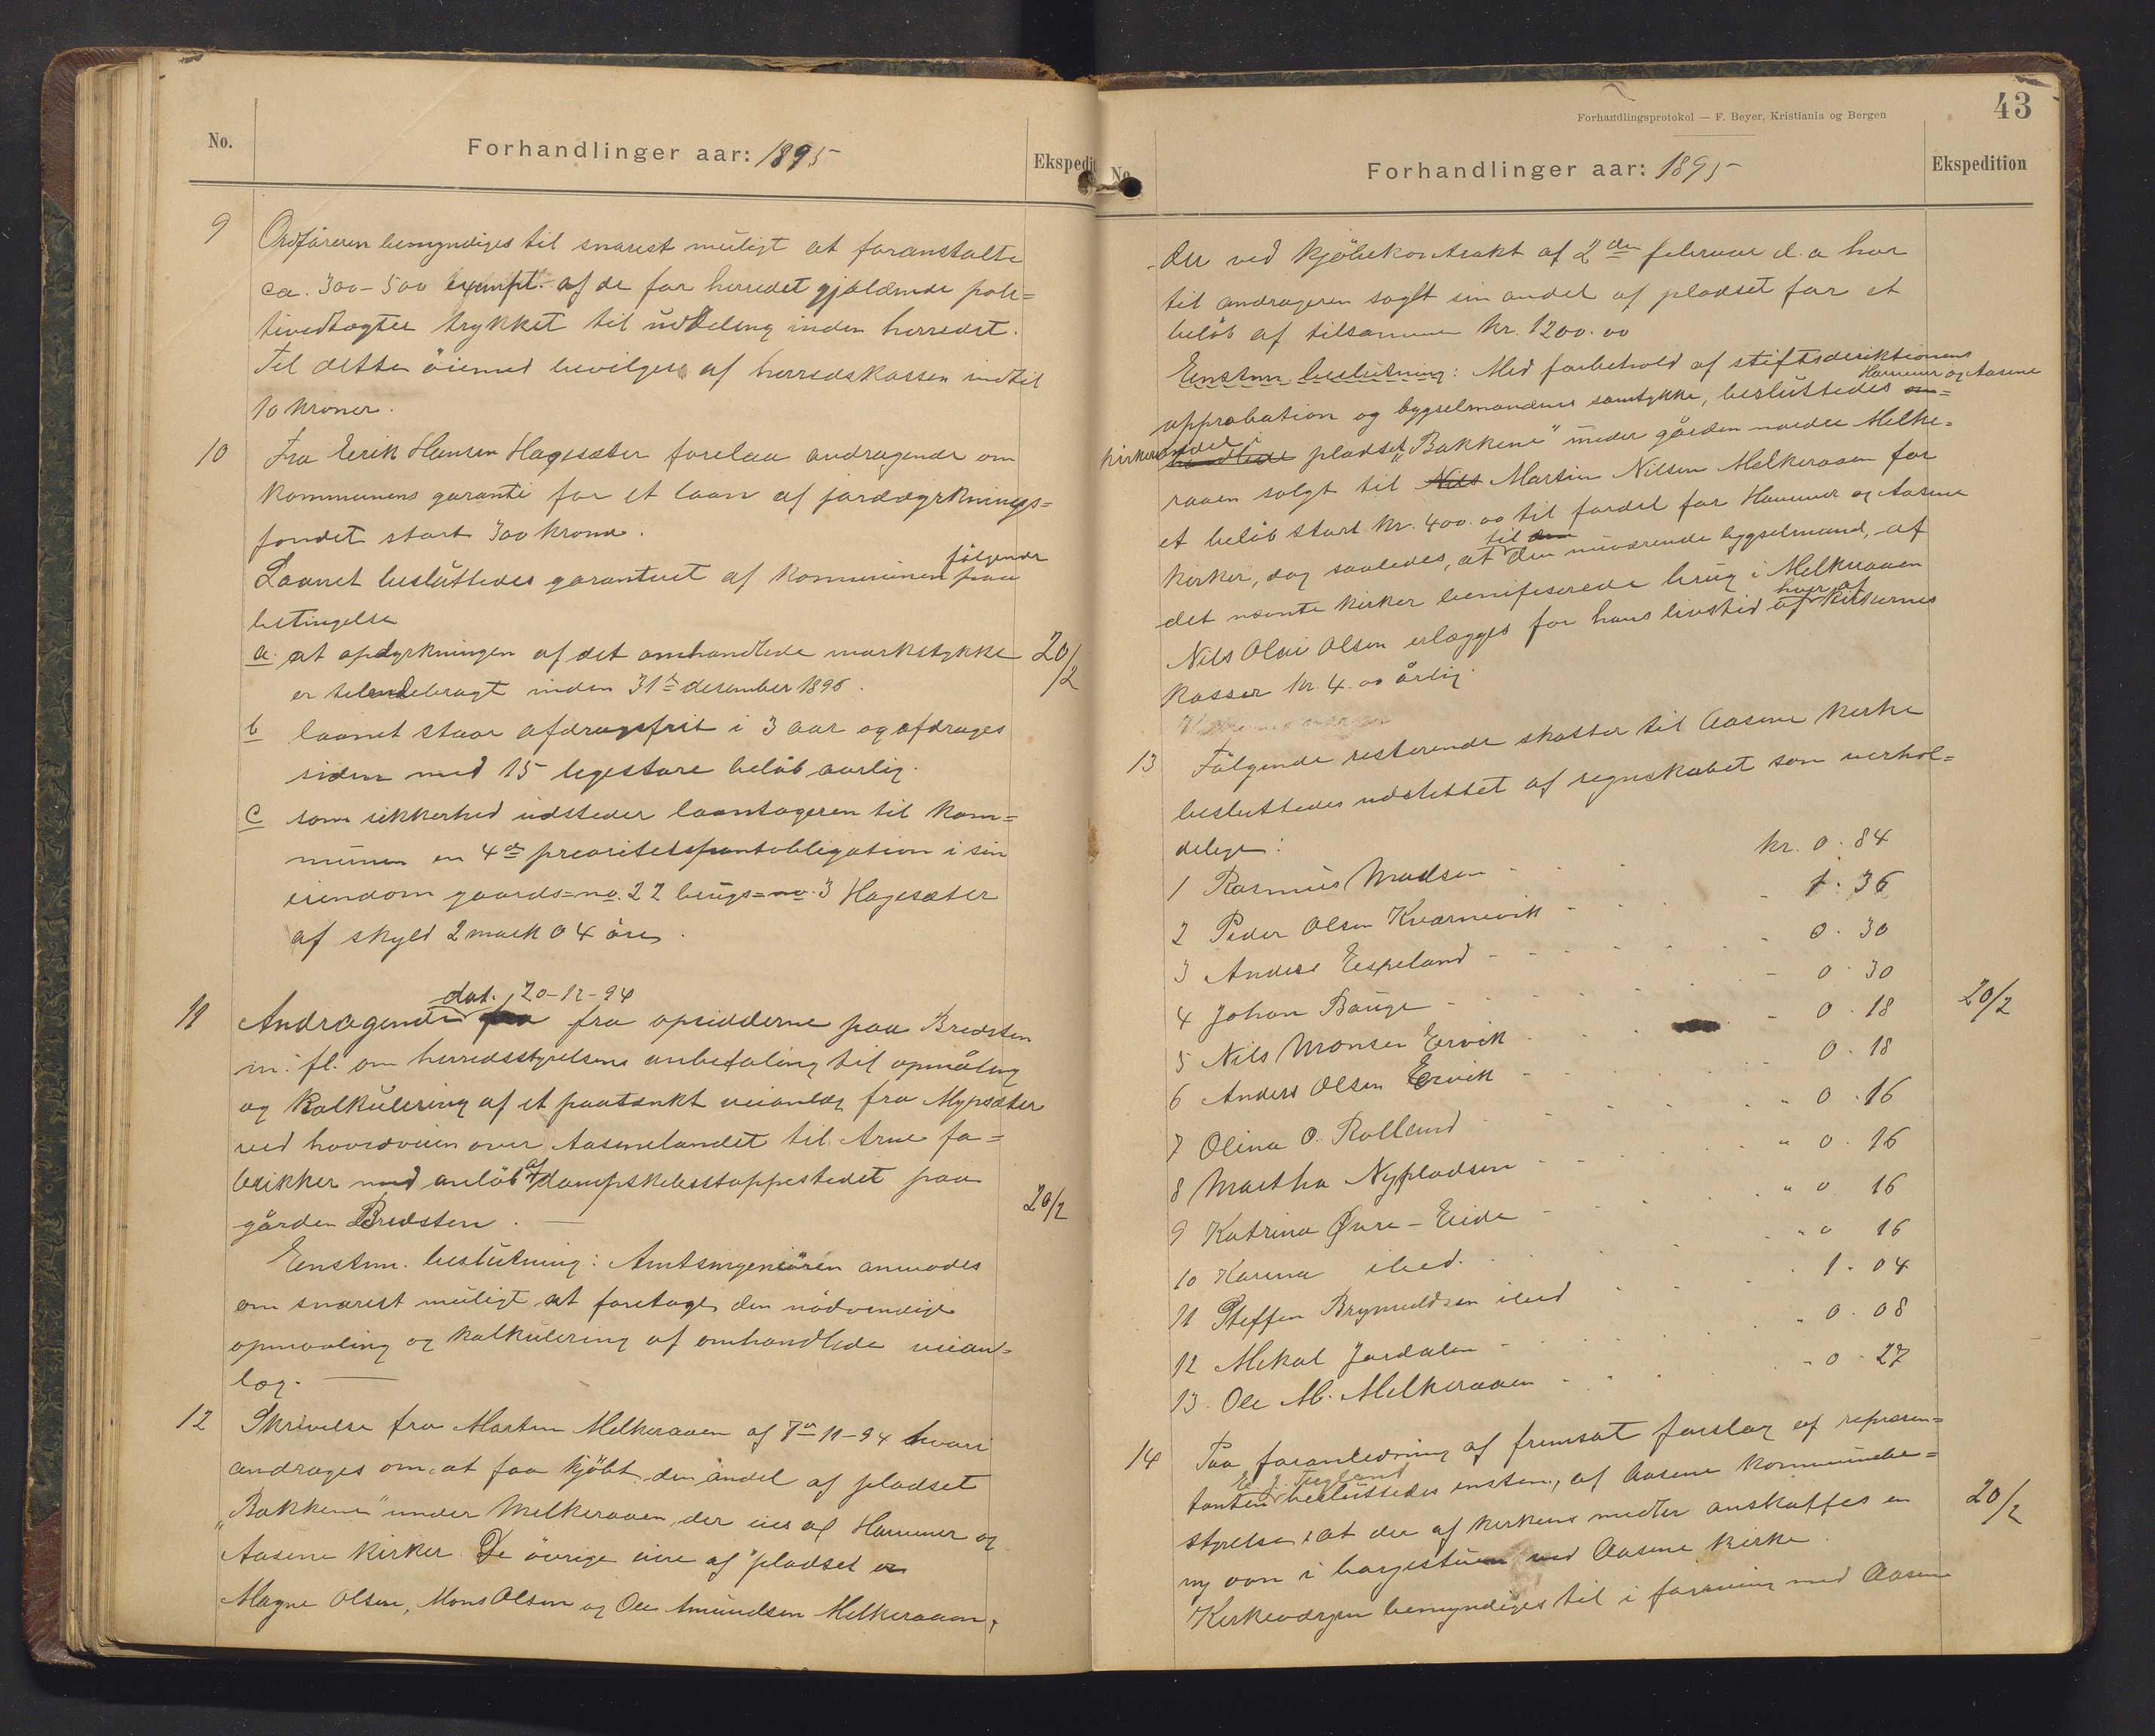 No.
Forhandlinger aar: 1895
Ekspedit
9 Ordföreren bemyndiges til snarest muligt at foranstalte
ca. 300-500 exempl. af de for herredet gjældende poli=
tivedtægter trykket til uddeling inden herredet.
Til dette öiemed bevilges af herredskassen indtil
10 kroner.
10 Fra Erik Hansen Hagesæter forelaa andragende om
kommunens garanti for et laan af jorddyrknings=
fondet stort 300 kroner.
Laanet besluttedes garanteret af kommunen paa følgende
betingelse
a. at opdyrkningen af det omhandlede markstykke 20/2
er tilendebragt inden 31te desember 1896.
b laanet staar afdragsfrit i 3 aar og afdrages
siden med 15 ligestore beløb aarlig.
c som sikkerhed udsteder laantageren til kom=
munen en 4de prioritetspantobligation i sin
eiendom gaards=no. 22 brugs=no. 3 Hagesæter
af skyld 2 mark 04 öre.
11 Andragende dat. 20-12-94 fra opsidderne paa Bredsten
m. fl. om herredsstyrelsens anbefaling til opmåling
og kalkulering af et paatænkt veianlæg fra Mypsæter
ved hovedveien over Aasenelandet til Arne fa=
brikker med anløb af dampskibsstoppestedet paa
gården Bredsten. 20/2
Enstem. beslutning: Amtsingeniören anmodes
om snarest muligt at foretage den nödvendige
opmaaling og kalkulering af omhandlede veian=
læg.
12 Skrivelse fra Martin Melkeraaen af 7de 11-94 hvori
andrages om, at faa kjøbt den andel af pladset
"Bakkene" under Melkeraaen, der eies af Hammer og
Aasene kirker. De övrige eiere af pladset er
Magne Olsen, Mons Olsen og Ole Amundsen Melkeraaen,
Forhandlingsprotokol — F. Beyer, Kristiania og Bergen
43
No.
Forhandlinger aar: 1895
Ekspedition
der ved kjøbekontrakt af 2den februar d. a har
til andrageren solgt sin andel af pladset for et
beløb af tilsammen kr. 1200.00
Enstem beslutning: Med forbehold af stiftsdirektionens
approbation og bygselmandens samtykke, besluttedes om= Hammer og Aasene
kirkers andel i handlede pladset "Bakkene" under gården nordre Melke=
raaen solgt til Nils Martin Nilsen Melkeraaen for
et beløb stort kr. 400.00 til fordel for Hammer og Aasene
kirker, dog saaledes, at til den nuværende bygselmand, af
det nævnte kirker benificerede brug i Melkeraaen
Nils Olai Olsen erlægges for hans livstid af hver af kirkernes
kasser kr. 4.00 årlig.
13 Fölgende resterende skatter til Aasene kirke
besluttedes udslettet af regnskabet som uerhol=
delige:
1 Rasmus Madsen kr. 0.84
2 Peder Olsen Kvernevik 1.36
3 Anders Eespeland 0.30
4 Johan Bauge 0.30
5 Nils Monsen Ervik 0.18 20/2
6 Anders Olsen Ervik 0.18
7 Olina O. Rolland 0.16
8 Martha Nypladsen " 0.16
9 Katrina Øvre-Eide " 0 16
10 Karina ibid. " 0 16
11 Steffen Brynuldsen ibid 1.04
12 Mikal Jordalen 0.08
13. Ole M. Melkeraaen 0.27
14 Paa foranledning af fremsat forslag af repræsen=
tanten E. J. Tugland besluttedes enstem., af Aasene kommunebe=
styrelse, at der af kirkens midler anskaffes en 20/2
ny ovn i borgestuen ved Aasene kirke.
Kirkeværgen bemyndiges til i forening med Aasene